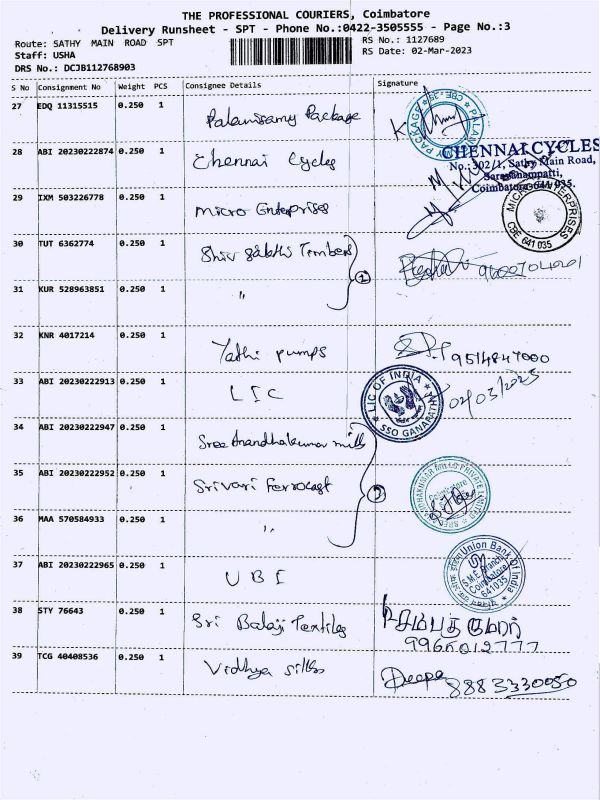 THE PROFESSIONAL COURIERS, Coimbatore
Delivery Runsheet - SPT - Phone No.:0422-3505555 - Page No.:3
Route: SATHY MAIN ROAD SPT
RS No.: 1127689
Staff: USHA
RS Date: 02-Mar-2023
DRS No.: DCJB112768903
S No Consignment No Weight PCS Consignee Details Signature
27 EDQ 11315515 0.250 1 Palanisamy Package
PALANI PACKAGE CBE-35
28 ABI 20230222874 0.250 1 Chennai Cycles
CHENNAI CYCLES
No.:302/1, Sathy Main Road,
Saravanampatti,
Coimbatore-641 035.
29 IXM 503226778 0.250 1 Micro Enterprises
MICRO ENTERPRISES
CBE 641 035
30 TUT 6362774 0.250 1 Shiv Sakthi Timbers
31 KUR 528963851 0.250 1 "
2
32 KNR 4017214 0.250 1 Yathi pumps
9514847000
33 ABI 20230222913 0.250 1 LIC
LIC OF INDIA
SSO GANAPATHY
02/03/2023
34 ABI 20230222947 0.250 1 Sree Anandhakumar mills
35 ABI 20230222952 0.250 1 Srivari Ferrocast
36 MAA 570584933 0.250 1 "
3
37 ABI 20230222965 0.250 1 UBI
Union Bank Of India
S.M.E Branch
Coimbatore
641035
38 STY 76643 0.250 1 Sri Balaji Textiles
சம்பத் குமார்
9965012777
39 TCG 40408536 0.250 1 Vidhya silks
Deepa
8883330050